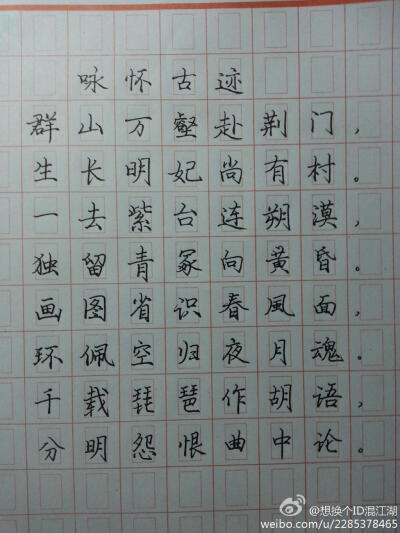 咏怀古迹
群山万壑赴荆门,
生长明妃尚有村。
一去紫台连朔漠,
独留青冢向黄昏。
画图省识春風面,
环佩空归夜月魂。
千载琵琶作胡语,
分明怨恨曲中论。
@想换个ID混江湖
weibo.com/u/2285378465